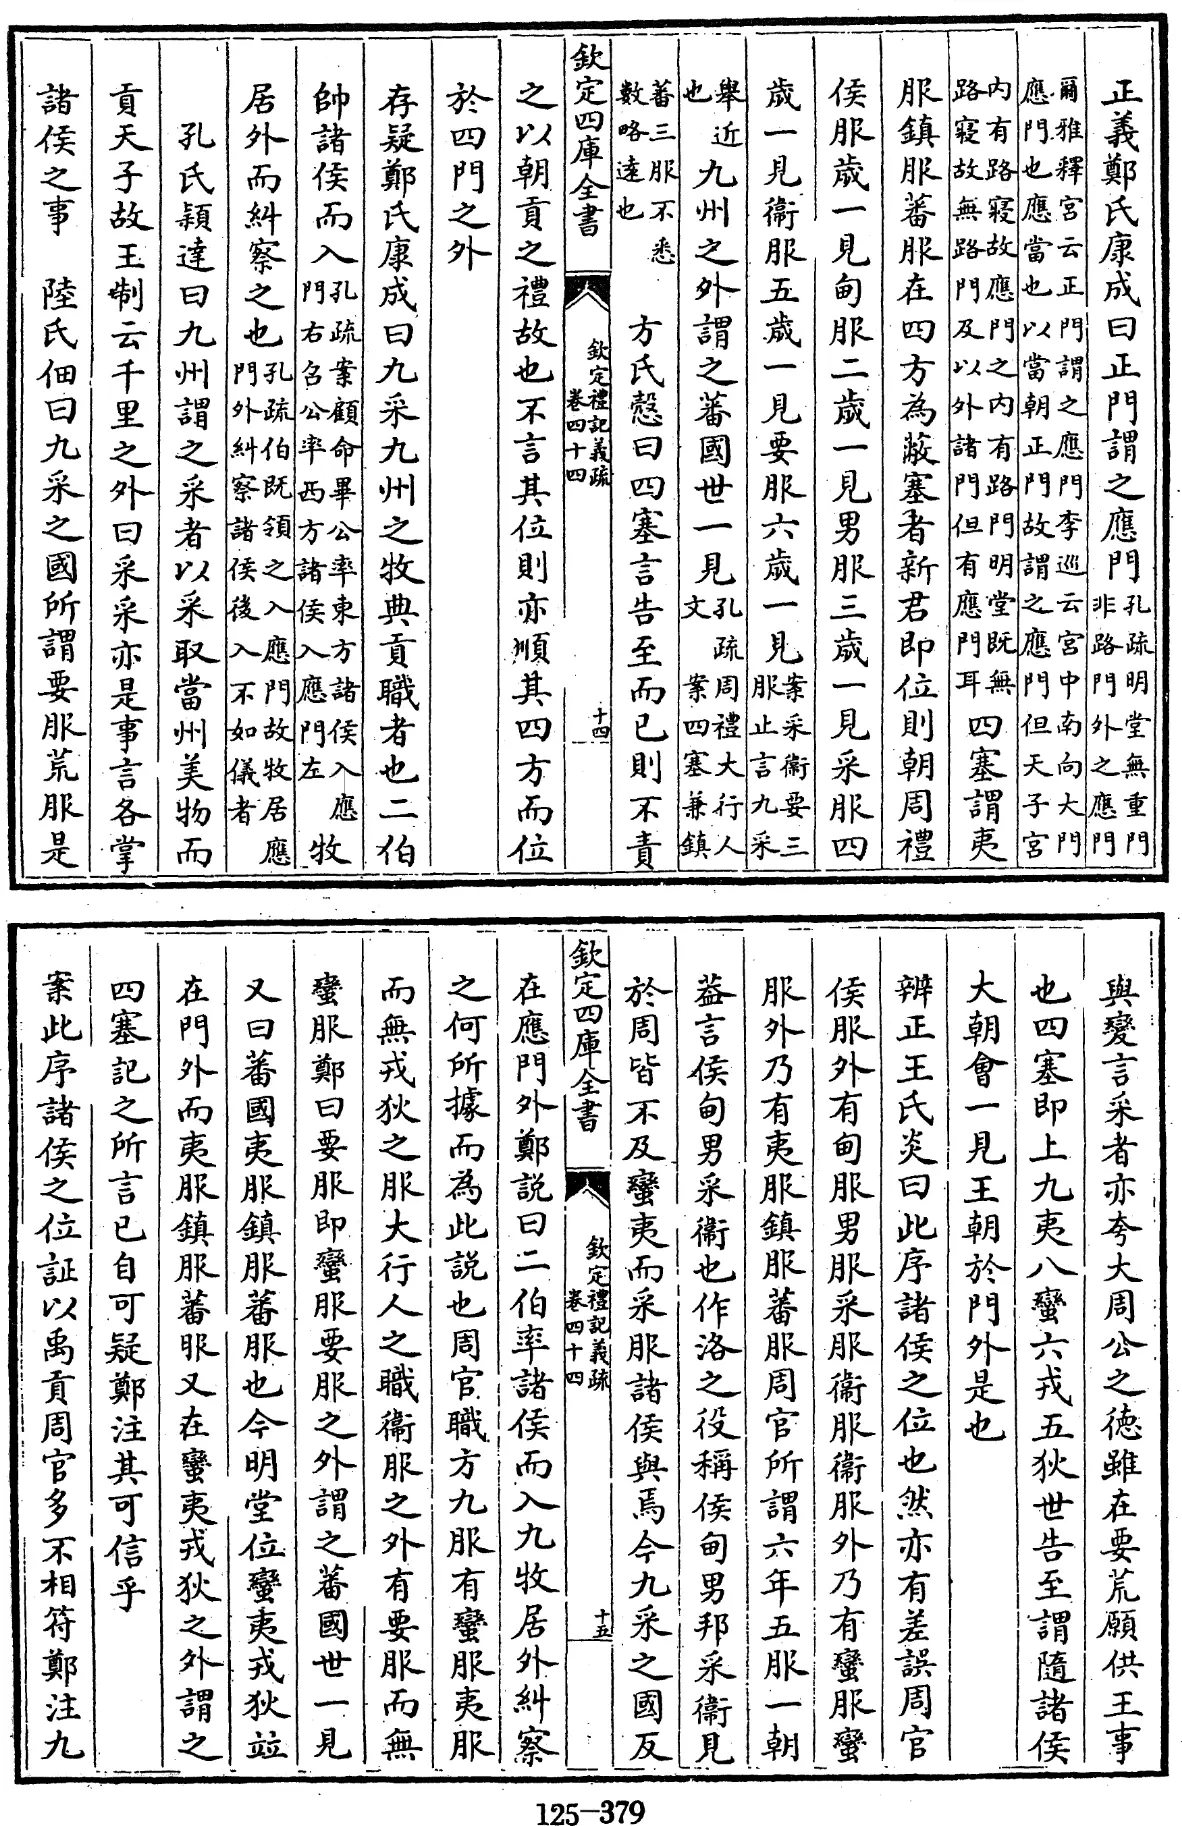 正義鄭氏康成曰正門謂之應門孔疏明堂無重門非路門外之應門
爾雅釋宮云正門謂之應門李巡云宮中南向大門
應門也應當也以當朝正門故謂之應門但天子宮
内有路寢故應門之内有路門明堂既無路寢故無路門及以外諸門但有應門耳四塞謂夷
服鎮服蕃服在四方為蔽塞者新君即位則朝周禮
侯服歲一見甸服二歲一見男服三歲一見采服四
歲一見衞服五歲一見要服六歲一見案采衞要三服止言九采
舉近也九州之外謂之蕃國世一見孔疏周禮大行人文 案四塞兼鎮
蕃三服不悉數略逺也 方氏慤曰四塞言告至而已則不責
欽定四庫全書 欽定禮記義疏 卷四十四 十四
之以朝貢之禮故也不言其位則亦順其四方而位
於四門之外
存疑鄭氏康成曰九采九州之牧典貢職者也二伯
帥諸侯而入孔疏案顧命畢公率東方諸侯入應門右召公率西方諸侯入應門左牧
居外而糾察之也孔疏伯既領之入應門故牧居應門外糾察諸侯後入不如儀者
孔氏頴達曰九州謂之采者以采取當州美物而
貢天子故王制云千里之外曰采采亦是事言各掌
諸侯之事 陸氏佃曰九采之國所謂要服荒服是
與變言采者亦夸大周公之德雖在要荒願供王事
也四塞即上九夷八蠻六戎五狄世告至謂隨諸侯
大朝會一見王朝於門外是也
辨正王氏炎曰此序諸侯之位也然亦有差誤周官
侯服外有甸服男服采服衞服衞服外乃有蠻服蠻
服外乃有夷服鎮服蕃服周官所謂六年五服一朝
葢言侯甸男采衞也作洛之役稱侯甸男邦采衞見
於周皆不及蠻夷而采服諸侯與焉今九采之國反
欽定四庫全書 欽定禮記義疏 卷四十四 十五
在應門外鄭説曰二伯率諸侯而入九牧居外糾察
之何所據而為此説也周官職方九服有蠻服夷服
而無戎狄之服大行人之職衞服之外有要服而無
蠻服鄭曰要服即蠻服要服之外謂之蕃國世一見
又曰蕃國夷服鎮服蕃服也今明堂位蠻夷戎狄竝
在門外而夷服鎮服蕃服又在蠻夷戎狄之外謂之
四塞記之所言已自可疑鄭注其可信乎
案此序諸侯之位証以禹貢周官多不相符鄭注九
125-379